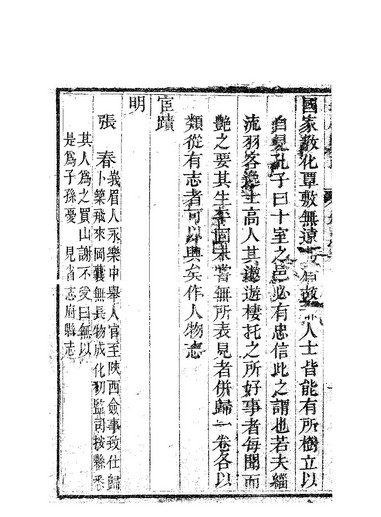 國家教化覃敷無遠人士皆能有所樹立以
自見孔子曰十室之邑必有忠信此之謂也若夫緇
流羽客逸士高人其遨遊棲托之所好事者每聞而
艷之要其生平固未嘗無所表見者併歸一卷各以
類從有志者可以興矣作人物志
宦蹟
明
張春 峩眉人永樂中舉人官至陜西僉事致仕歸
卜築飛來岡囊無長物成化初監司按縣悉
其人為之買山謝不受曰無以
是為子孫憂 見省志府縣志